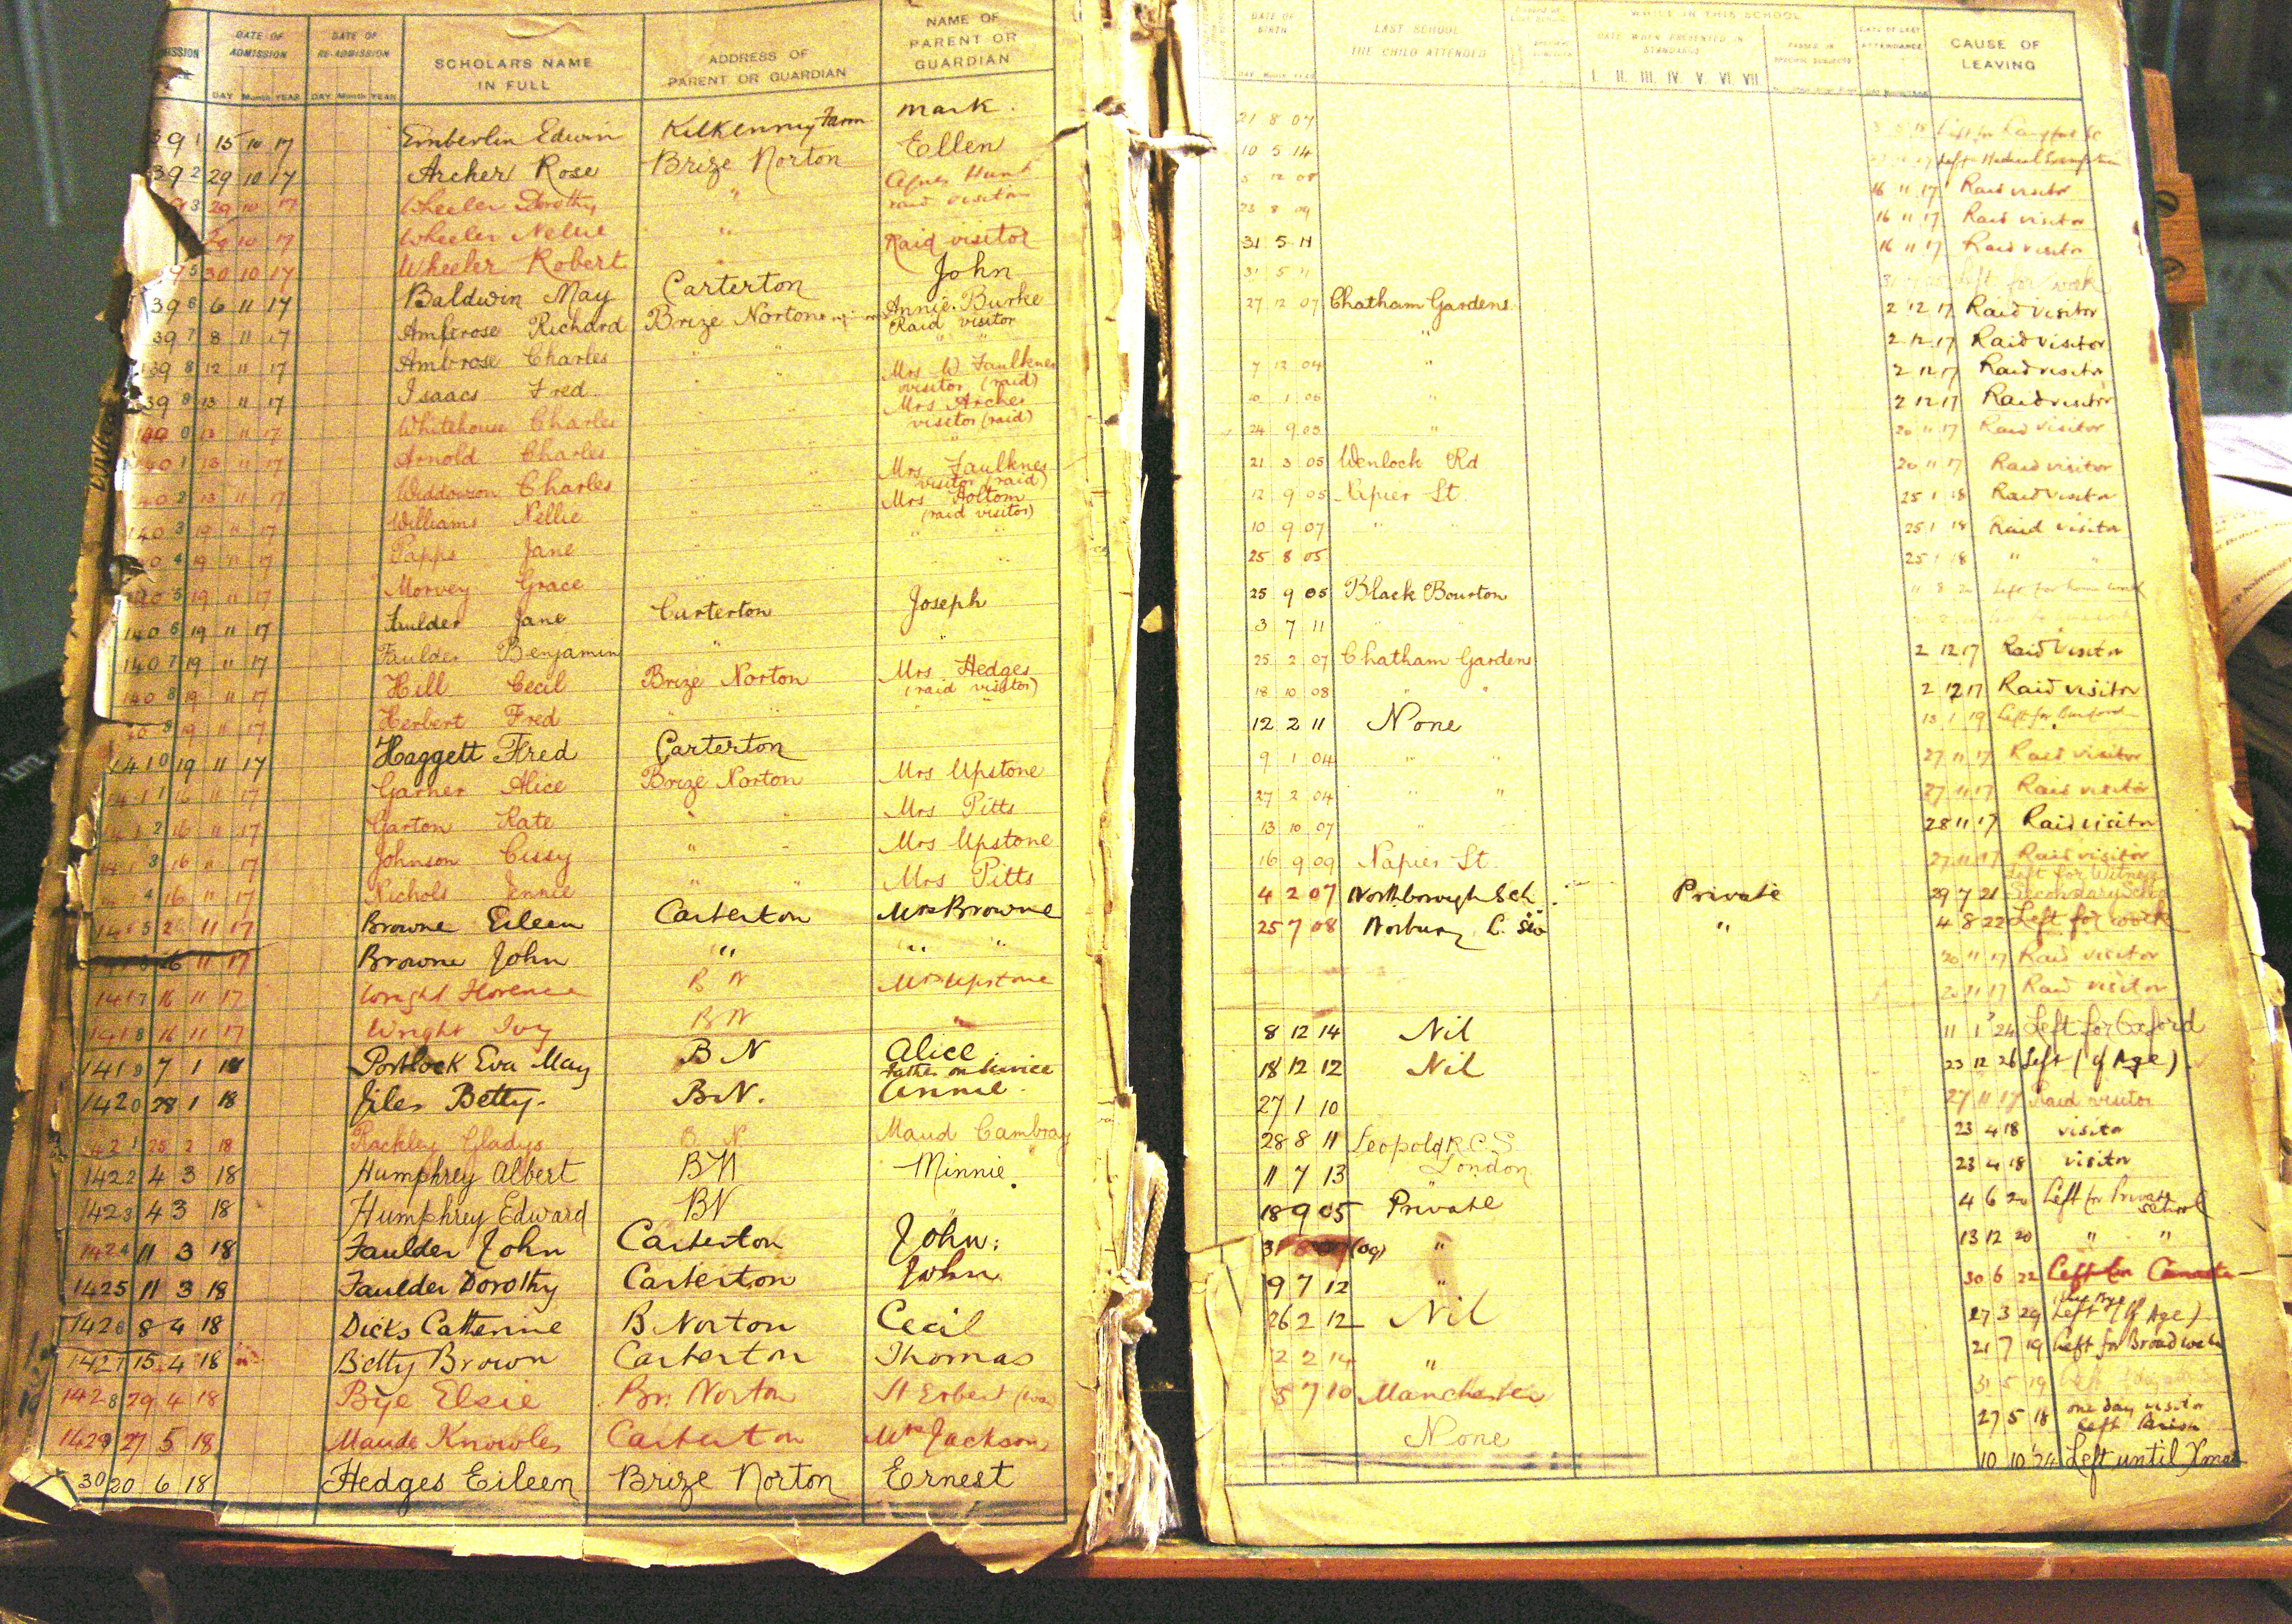 DATE OF ADMISSION DATE OF RE-ADMISSION SCHOLAR'S NAME IN FULL ADDRESS OF PARENT OR GUARDIAN NAME OF PARENT OR GUARDIAN
DAY Month YEAR DAY Month YEAR
391 15 10 17 Emberlin Edwin Kilkenny Farm Mark
392 29 10 17 Archer Rose Brize Norton Ellen
3 29 10 17 Wheeler Dorothy " Agnes Hunt raid visitor
29 10 17 Wheeler Nellie "
95 30 10 17 Wheeler Robert Raid visitor
396 6 11 17 Baldwin May Carterton John
397 8 11 17 Ambrose Richard Brize Norton Annie Burke Raid visitor
398 12 11 17 Ambrose Charles " " " "
398 13 11 17 Isaacs Fred " " Mrs W Faulkner visitor (raid)
1400 13 11 17 Whitehouse Charles " " Mrs Archer visitor (raid)
1401 13 11 17 Arnold Charles " " "
1402 13 11 17 Widdowson Charles " " Mrs Faulkner visitor (raid)
1403 19 11 17 Williams Nellie " " Mrs Holtom (raid visitor)
1404 19 11 17 Papps Jane " " " "
1405 19 11 17 Morvey Grace " " " "
1406 19 11 17 Faulder Jane Carterton Joseph
1407 19 11 17 Faulder Benjamin " "
1408 19 11 17 Hill Cecil Brize Norton Mrs Hedges (raid visitor)
19 11 17 Herbert Fred " " " "
1410 19 11 17 Haggett Fred Carterton
1411 16 11 17 Garner Alice Brize Norton Mrs Upstone
1412 16 11 17 Garton Kate " " Mrs Pitts
1413 16 11 17 Johnson Cissy " " Mrs Upstone
1414 16 11 17 Nichols Jennie " " Mrs Pitts
1415 26 11 17 Browne Eileen Carterton Mrs Browne
26 11 17 Browne John " " "
1417 16 11 17 Wright Florence B N Mrs Upstone
1418 16 11 17 Wright Ivy B N "
1419 7 1 18 Portlock Eva May B N Alice Father on Service
1420 28 1 18 Jiles Betty. B.N. Annie.
1421 25 2 18 Rackley Gladys B N Maud Cambray
1422 4 3 18 Humphrey Albert BN Minnie.
1423 4 3 18 Humphrey Edward BN "
1424 11 3 18 Faulder John Carterton John.
1425 11 3 18 Faulder Dorothy Carterton John
1426 8 4 18 Dicks Catherine B Norton Cecil
1427 15 4 18 Betty Brown Carterton Thomas
1428 29 4 18 Bye Elsie Br. Norton
1429 27 5 18 Maude Knowles Carterton Mrs Jackson
30 20 6 18 Hedges Eileen Brize Norton Ernest
DATE OF BIRTH LAST SCHOOL THE CHILD ATTENDED WHILE IN THIS SCHOOL
DATE WHEN PRESENTED IN STANDARDS PASSED IN SPECIFIC SUBJECTS DATE OF LAST ATTENDANCE CAUSE OF LEAVING
DAY Month YEAR I. II. III. IV. V. VI. VII
21 8 07 Left for
10 5 14 Left Medical Exemption
5 12 08 16 11 17 Raid visitor
23 8 09 16 11 17 Raid visitor
31 5 11 16 11 17 Raid visitor
31 5 11 Left for work
27 12 07 Chatham Gardens 2 12 17 Raid visitor
" 2 12 17 Raid visitor
7 12 04 " 2 12 17 Raid visitor
1 06 " 2 12 17 Raid visitor
24 9 03 " 20 11 17 Raid visitor
21 3 05 Wenlock Rd 20 11 17 Raid visitor
12 9 05 Napier St. 25 1 18 Raid visitor
10 9 07 " " 25 1 18 Raid visitor
25 8 05 25 1 18 " "
25 9 05 Black Bourton 11 8 20 Left for home work
3 7 11 " "
25 2 07 Chatham Gardens 2 12 17 Raid visitor
18 10 08 " " 2 12 17 Raid visitor
12 2 11 None 13 1 19 Left for Burford
9 1 04 " " 27 11 17 Raid visitor
27 2 04 " " 27 11 17 Raid visitor
13 10 07 " 28 11 17 Raid visitor
16 9 09 Napier St. 27 11 17 Raid visitor
4 2 07 Northborough Sch. Private 29 7 21 Left for Witney Secondary School
25 7 08 Norbury " 4 8 22 Left for work
20 11 17 Raid visitor
20 11 17 Raid visitor
8 12 14 Nil 11 1 24 Left for Oxford
18 12 12 Nil 23 12 26 Left (of Age)
27 1 10 27 11 17 Raid visitor
28 8 11 Leopold R.C.S London 23 4 18 visitor
11 7 13 " 23 4 18 visitor
18 9 05 Private 4 6 20 Left for Private School
31 (09) " 13 12 20 " "
9 7 12 " 30 6 22 Left for
26 2 12 Nil 27 3 29 Left (of Age)
2 2 14 " 21 7 19 Left for Broadwell
5 7 10 Manchester 31 5 19
None 27 5 18 one day visitor Left Parish
10 10 24 Left until Xmas